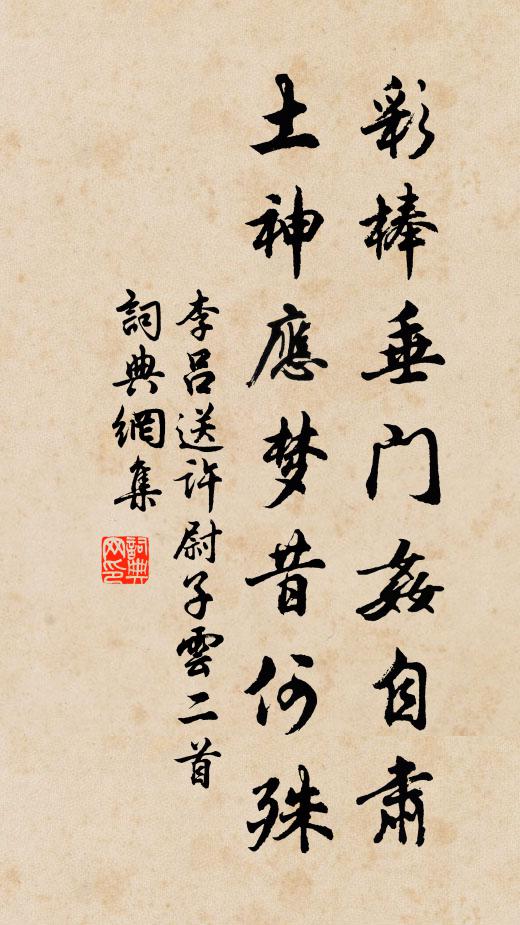 彩棒垂门姦自肅
土神應梦昔何殊
李吕送许尉子雲二首
詞典網集
詞典网印